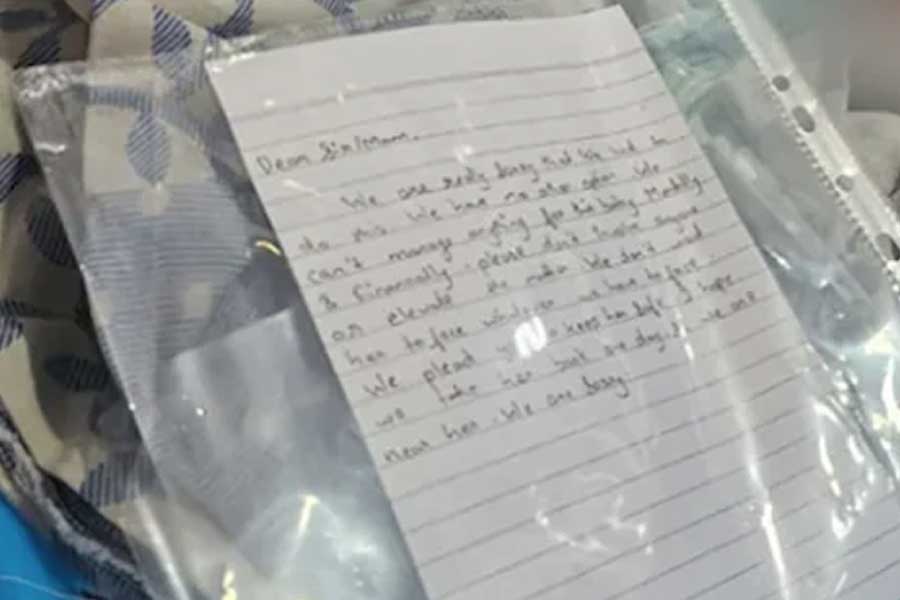 Dear Sir/Mam.
We are really sorry that we had to
do this. We have no other option. We
can't manage anything for this baby Mentally
& financially. please don't involve anyone
or elevate the matter. We don't want
her to face whatever we have to face.
We plead you to keep her safe. I hope
we take her back one day. we are
near her. We are sorry